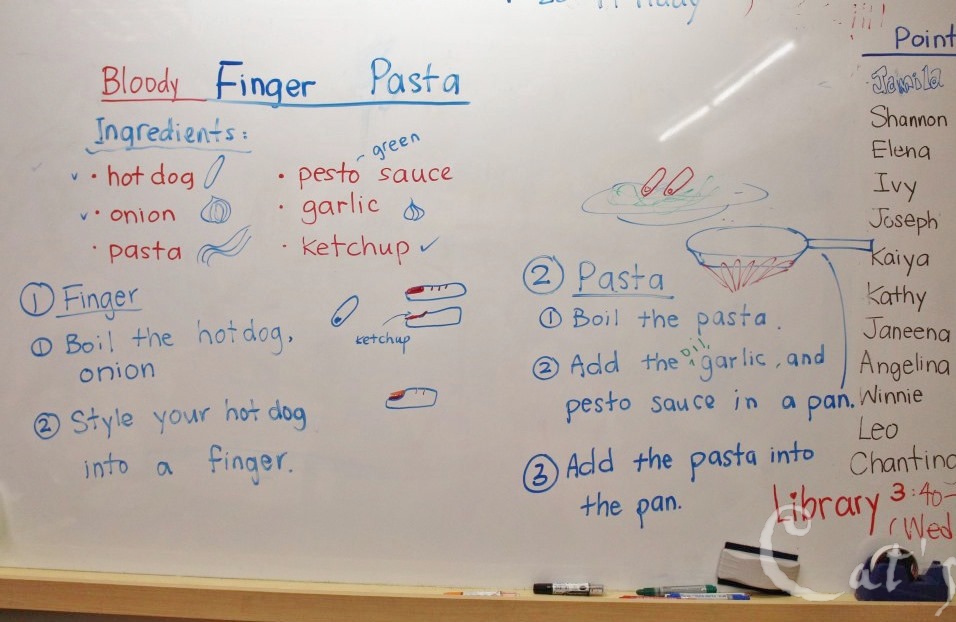 Bloody Finger Pasta
Ingredients:
• hot dog
• onion
• pasta
green
• pesto sauce
• garlic
• ketchup ✓
① Finger
① Boil the hotdog,
onion
ketchup
② Style your hot dog
into a finger.
② Pasta
① Boil the pasta.
② Add the oil, garlic, and
pesto sauce in a pan.
③ Add the pasta into
the pan.
Point
Shannon
Elena
Ivy
Joseph
Kaiya
Kathy
Janeena
Angelina
Winnie
Leo
Chanting
Library 3:40-
(Wed
Cat's